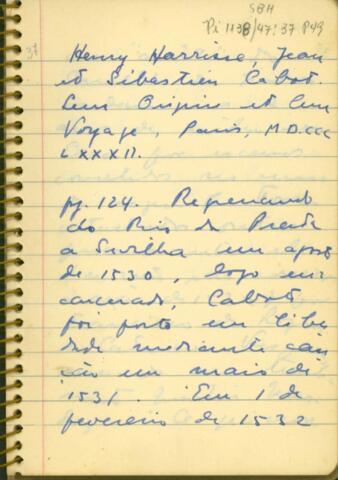 SBH
Pi 1138/47:37 P49
37
Henry Harrisse, Jean
et Sébastien Cabot.
Leur Origine et leur
Voyage, Paris, M.D.CCC
LXXXII.
pg. 124. Regressando
do Rio da Prata
a Sevilha em agosto
de 1530, logo en
carcerado, Cabot
foi posto em liber
dade mediante cau
ção em maio de
1531. Em 1 de
fevereiro de 1532